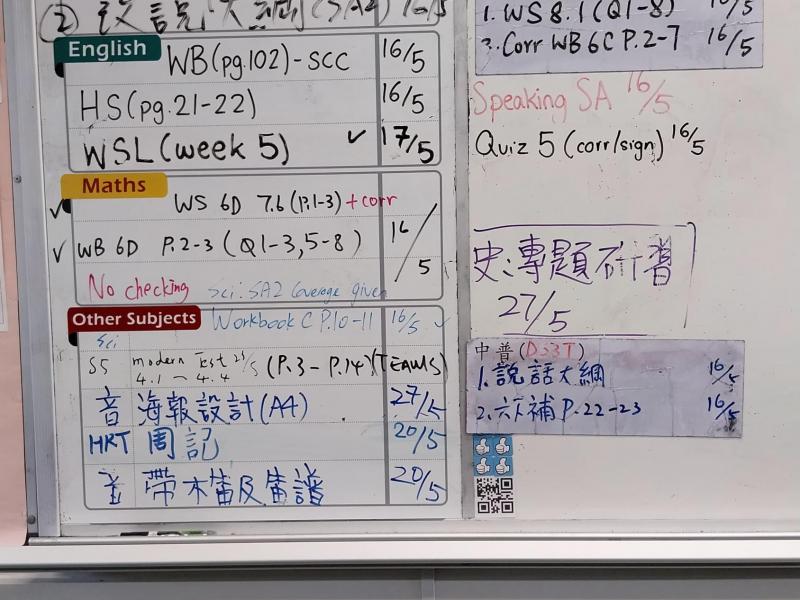 (2) 說 大綱 (SA2) 16/5
English
WB(pg.102)-SCC 16/5
HS(pg.21-22) 16/5
WSL(week 5) ✓ 17/5
Maths
✓ WS 6D 7.6 (P.1-3) +corr
✓ WB 6D P.2-3 (Q1-3,5-8) 16/5
No checking Sci: SA2 Coverage given
Other Subjects
Sci Workbook C P.10-11 16/5 ✓
SS modern Test 23/5 (P.3-P.14)(TEAMS)
4.1 - 4.4
音 海報設計(A4) 27/5
HRT 周記 20/5
帶木笛及笛譜 20/5
1. WS 8.1 (Q1-8) 16/5
2. Corr WB 6C P.2-7 16/5
Speaking SA 16/5
Quiz 5 (corr/sign) 16/5
史:專題研習
27/5
中普(D33T)
1. 說話大綱 16/5
2. 六下補 P.22-23 16/5